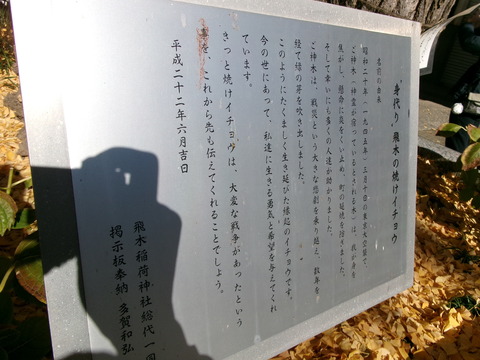 "身代り" 飛木の焼けイチョウ
名前の由来
昭和二十年(一九四五年)三月十日の東京大空襲で
ご神木(神霊が宿っているとされる木)は、我が身を
焦がし、懸命に炎をくい止め、町の延焼を防ぎました。
そして幸いにも多くの人達が助かりました。
ご神木は、戦災という大きな悲劇を乗り越え、数年を
経て緑の芽を吹き出しました。
このようにたくましく生き延びた縁起のイチョウです。
今の世にあって、私達に生きる勇気と希望を与えてくれ
ています。
きっと焼けイチョウは、大変な戦争があったという
を、これから先も伝えてくれることでしょう。
平成二十二年六月吉日
飛木稲荷神社総代一同
掲示板奉納 多賀和弘